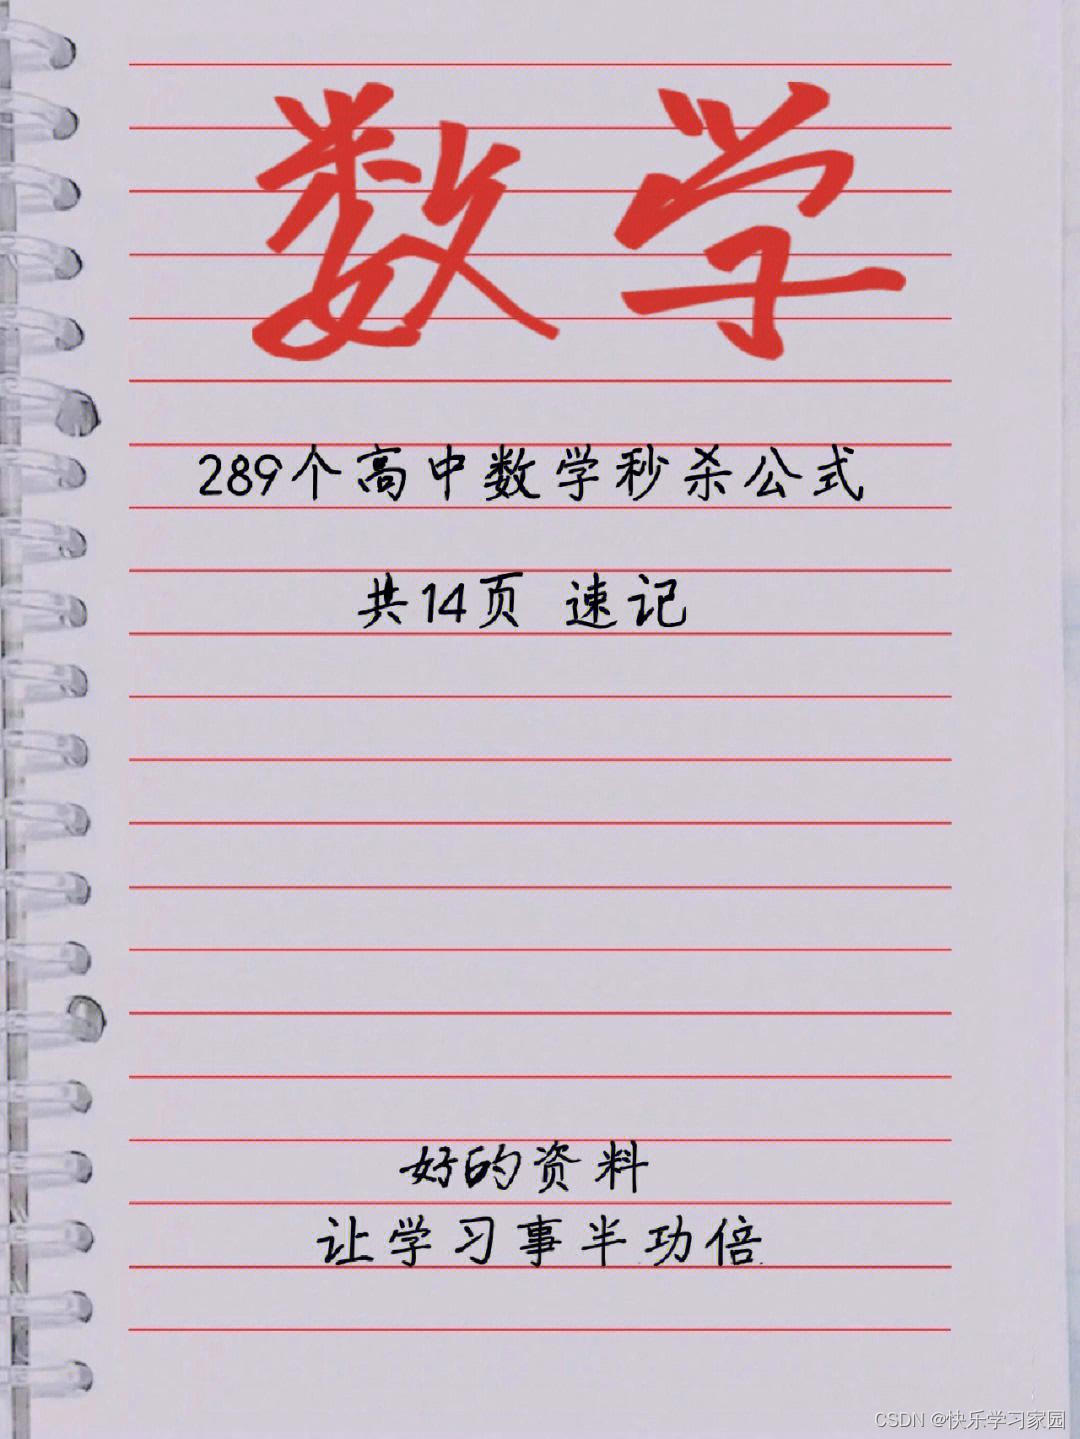 数学
289个高中数学秒杀公式
共14页 速记
好的资料
让学习事半功倍
CSDN @快乐学习家园